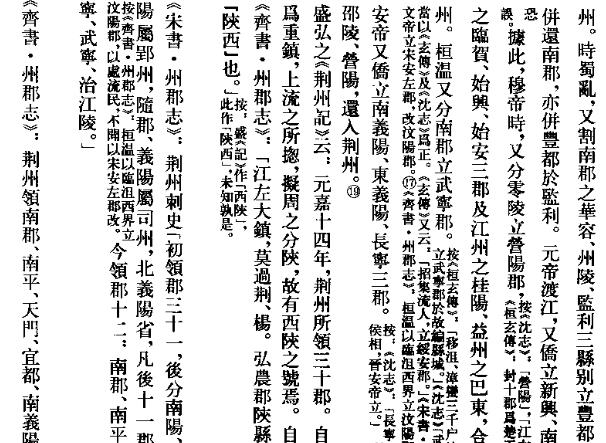 州。時蜀亂，又割南郡之華容、州陵、監利三縣別立豐都
併還南郡，亦併豐都於監利。元帝渡江，又僑立新興、南
恐
誤。據此，穆帝時，又分零陵立營陽郡，按《沈志》：「營陽」，「江左
《桓玄傳》，封十郡爲楚
之臨賀、始興、始安三郡及江州之桂陽、益州之巴東，合
州。桓温又分南郡立武寧郡。按《桓玄傳》：「移沮、漳蠻二千户
立武寧郡於故編縣城。」《沈志》「武
當以《玄傳》及《沈志》爲正。《玄傳》又云：「招集流人，立綏安郡。」《宋書·
文帝立宋安左郡，改汶陽郡。⑰《齊書·州郡志》，桓温以臨沮西界立汶陽
安帝又僑立南義陽、東義陽、長寧三郡。按，《沈志》：「長寧
侯相，晉安帝立。」
邵陵、營陽，還入荆州。⑲
盛弘之《荆州記》云：元嘉十四年，荆州所領三十郡。自
爲重鎮，上流之所揔，擬周之分陝，故有西陝之號焉。自
《齊書·州郡志》：「江左大鎮，莫過荆、楊。弘農郡陝縣
「陝西」也。」按，盛《記》作「西陝」，
此作「陝西」，未知孰是。
《宋書·州郡志》：荆州刺史「初領郡三十一，後分南陽、
陽屬郢州，隨郡、義陽屬司州，北義陽省，凡後十一郡
按《齊書·州郡志》，桓温以臨沮西界立
汶陽郡，以處流民，不聞以宋安左郡改。今領郡十二：南郡、南平
寧、武寧，治江陵。」
《齊書·州郡志》：荆州領南郡、南平、天門、宜都、南義陽